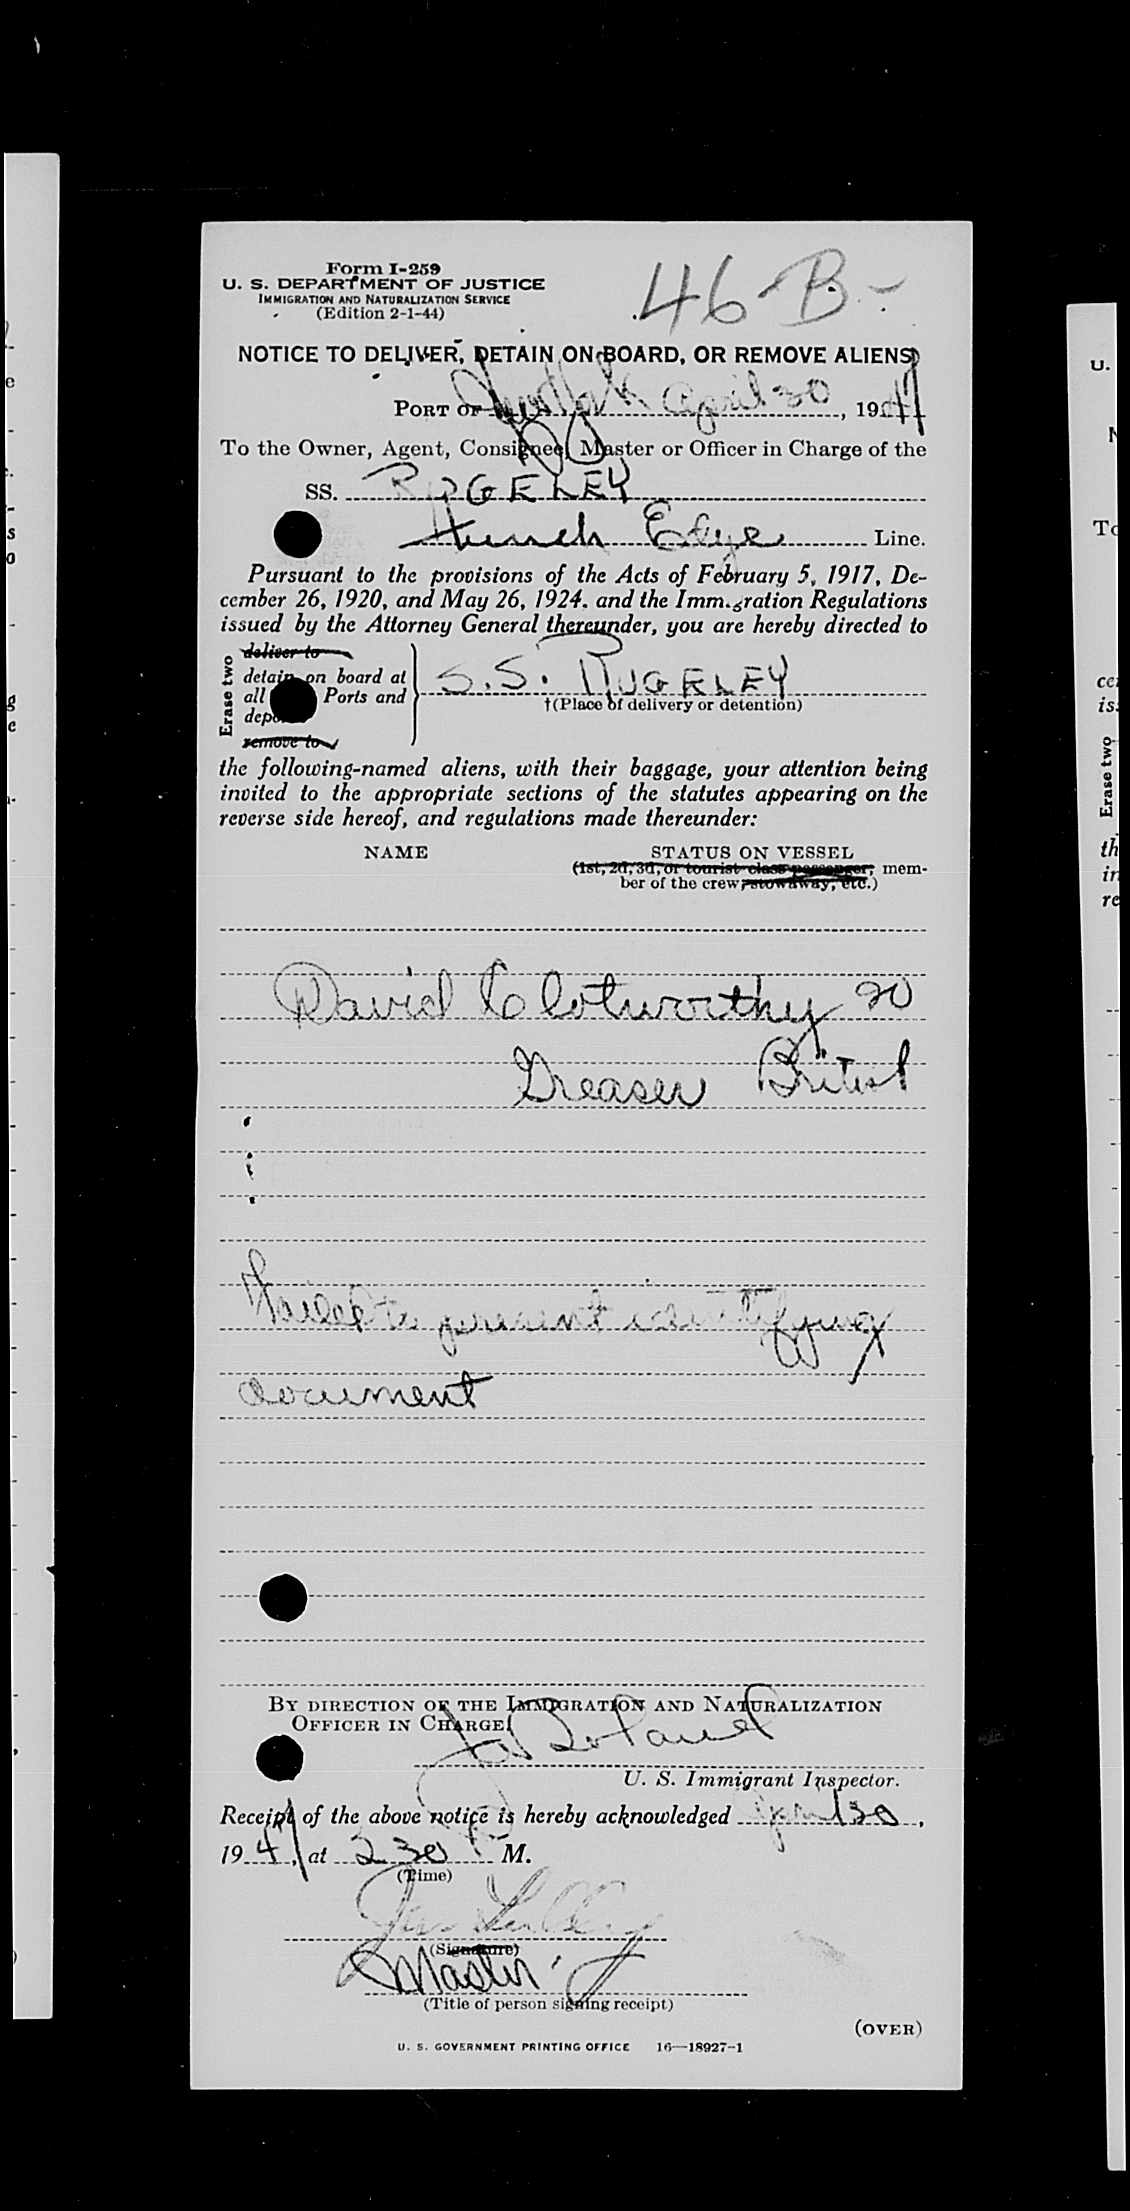 Form I-259
U. S. DEPARTMENT OF JUSTICE
IMMIGRATION AND NATURALIZATION SERVICE
(Edition 2-1-44)
46-B-
NOTICE TO DELIVER, DETAIN ON BOARD, OR REMOVE ALIENS
PORT OF Norfolk April 30, 1947
To the Owner, Agent, Consignee, Master or Officer in Charge of the
SS. RUGELEY
Edye Line.
Pursuant to the provisions of the Acts of February 5, 1917, De-
cember 26, 1920, and May 26, 1924, and the Immigration Regulations
issued by the Attorney General thereunder, you are hereby directed to
Erase two
deliver to
detain on board at
all Ports and
deport
remove to
S.S. RUGELEY
†(Place of delivery or detention)
the following-named aliens, with their baggage, your attention being
invited to the appropriate sections of the statutes appearing on the
reverse side hereof, and regulations made thereunder:
NAME STATUS ON VESSEL
(1st, 2d, 3d, or tourist class passenger, mem-
ber of the crew, stowaway, etc.)
David Clotworthy 20
Greaser British
Failed to present identifying
document
BY DIRECTION OF THE IMMIGRATION AND NATURALIZATION
OFFICER IN CHARGE.
U. S. Immigrant Inspector.
Receipt of the above notice is hereby acknowledged April 30,
1947, at 230 P M.
(Time)
(Signature)
Master
(Title of person signing receipt)
(OVER)
U. S. GOVERNMENT PRINTING OFFICE 16—18927-1